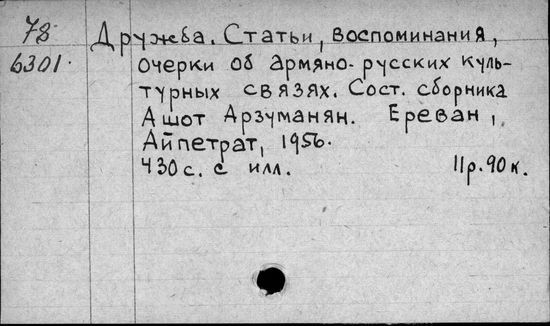 78
6301.
Дружба. Статьи, воспоминания,
очерки об армяно-русских куль-
турных связях. Сост. сборника
Ашот Арзуманян. Ереван,
Айпетрат, 1956.
430 с. с илл. 11р.90к.